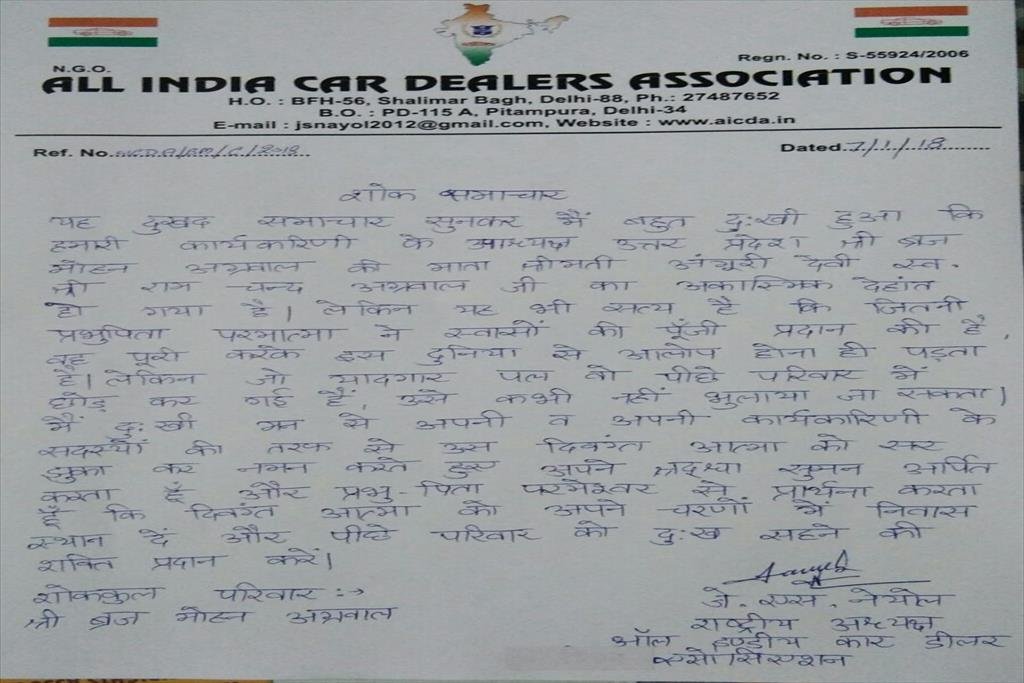 Regn. No. : S-55924/2006
N.G.O.
ALL INDIA CAR DEALERS ASSOCIATION
H.O. : BFH-56, Shalimar Bagh, Delhi-88, Ph.: 27487652
B.O. : PD-115 A, Pitampura, Delhi-34
E-mail : jsnayol2012@gmail.com, Website : www.aicda.in
Ref. No. Dated 7/1/18
शोक समाचार
यह दुखद समाचार सुनकर मैं बहुत दुःखी हुआ कि
हमारी कार्यकारिणी के अध्यक्ष उत्तर प्रदेश श्री ब्रज
मोहन अग्रवाल की माता श्रीमती अंगूरी देवी स्व.
श्री राम चन्द अग्रवाल जी का अकास्मिक देहांत
हो गया है। लेकिन यह भी सत्य है कि जितनी
प्रभुपिता परमात्मा ने स्वासों की पूँजी प्रदान की है,
वह पूरी करके इस दुनिया से आलोप होना ही पड़ता
है। लेकिन जो यादगार पल वो पीछे परिवार में
छोड़ कर गई हैं, उसे कभी नहीं भुलाया जा सकता।
मैं दुःखी मन से अपनी व अपनी कार्यकारिणी के
सदस्यों की तरफ से उस दिवंगत आत्मा को सर
झुका कर नमन करते हुए अपने श्रद्धा सुमन अर्पित
करता हूँ और प्रभु-पिता परमेश्वर से प्रार्थना करता
हूँ कि दिवंगत आत्मा को अपने चरणों में निवास
स्थान दें और पीछे परिवार को दुःख सहने की
शक्ति प्रदान करें।
शोककुल परिवार :→
श्री ब्रज मोहन अग्रवाल
जे. एस. नेयोल
राष्ट्रीय अध्यक्ष
ऑल इण्डीय कार डीलर
एसोसिएशन